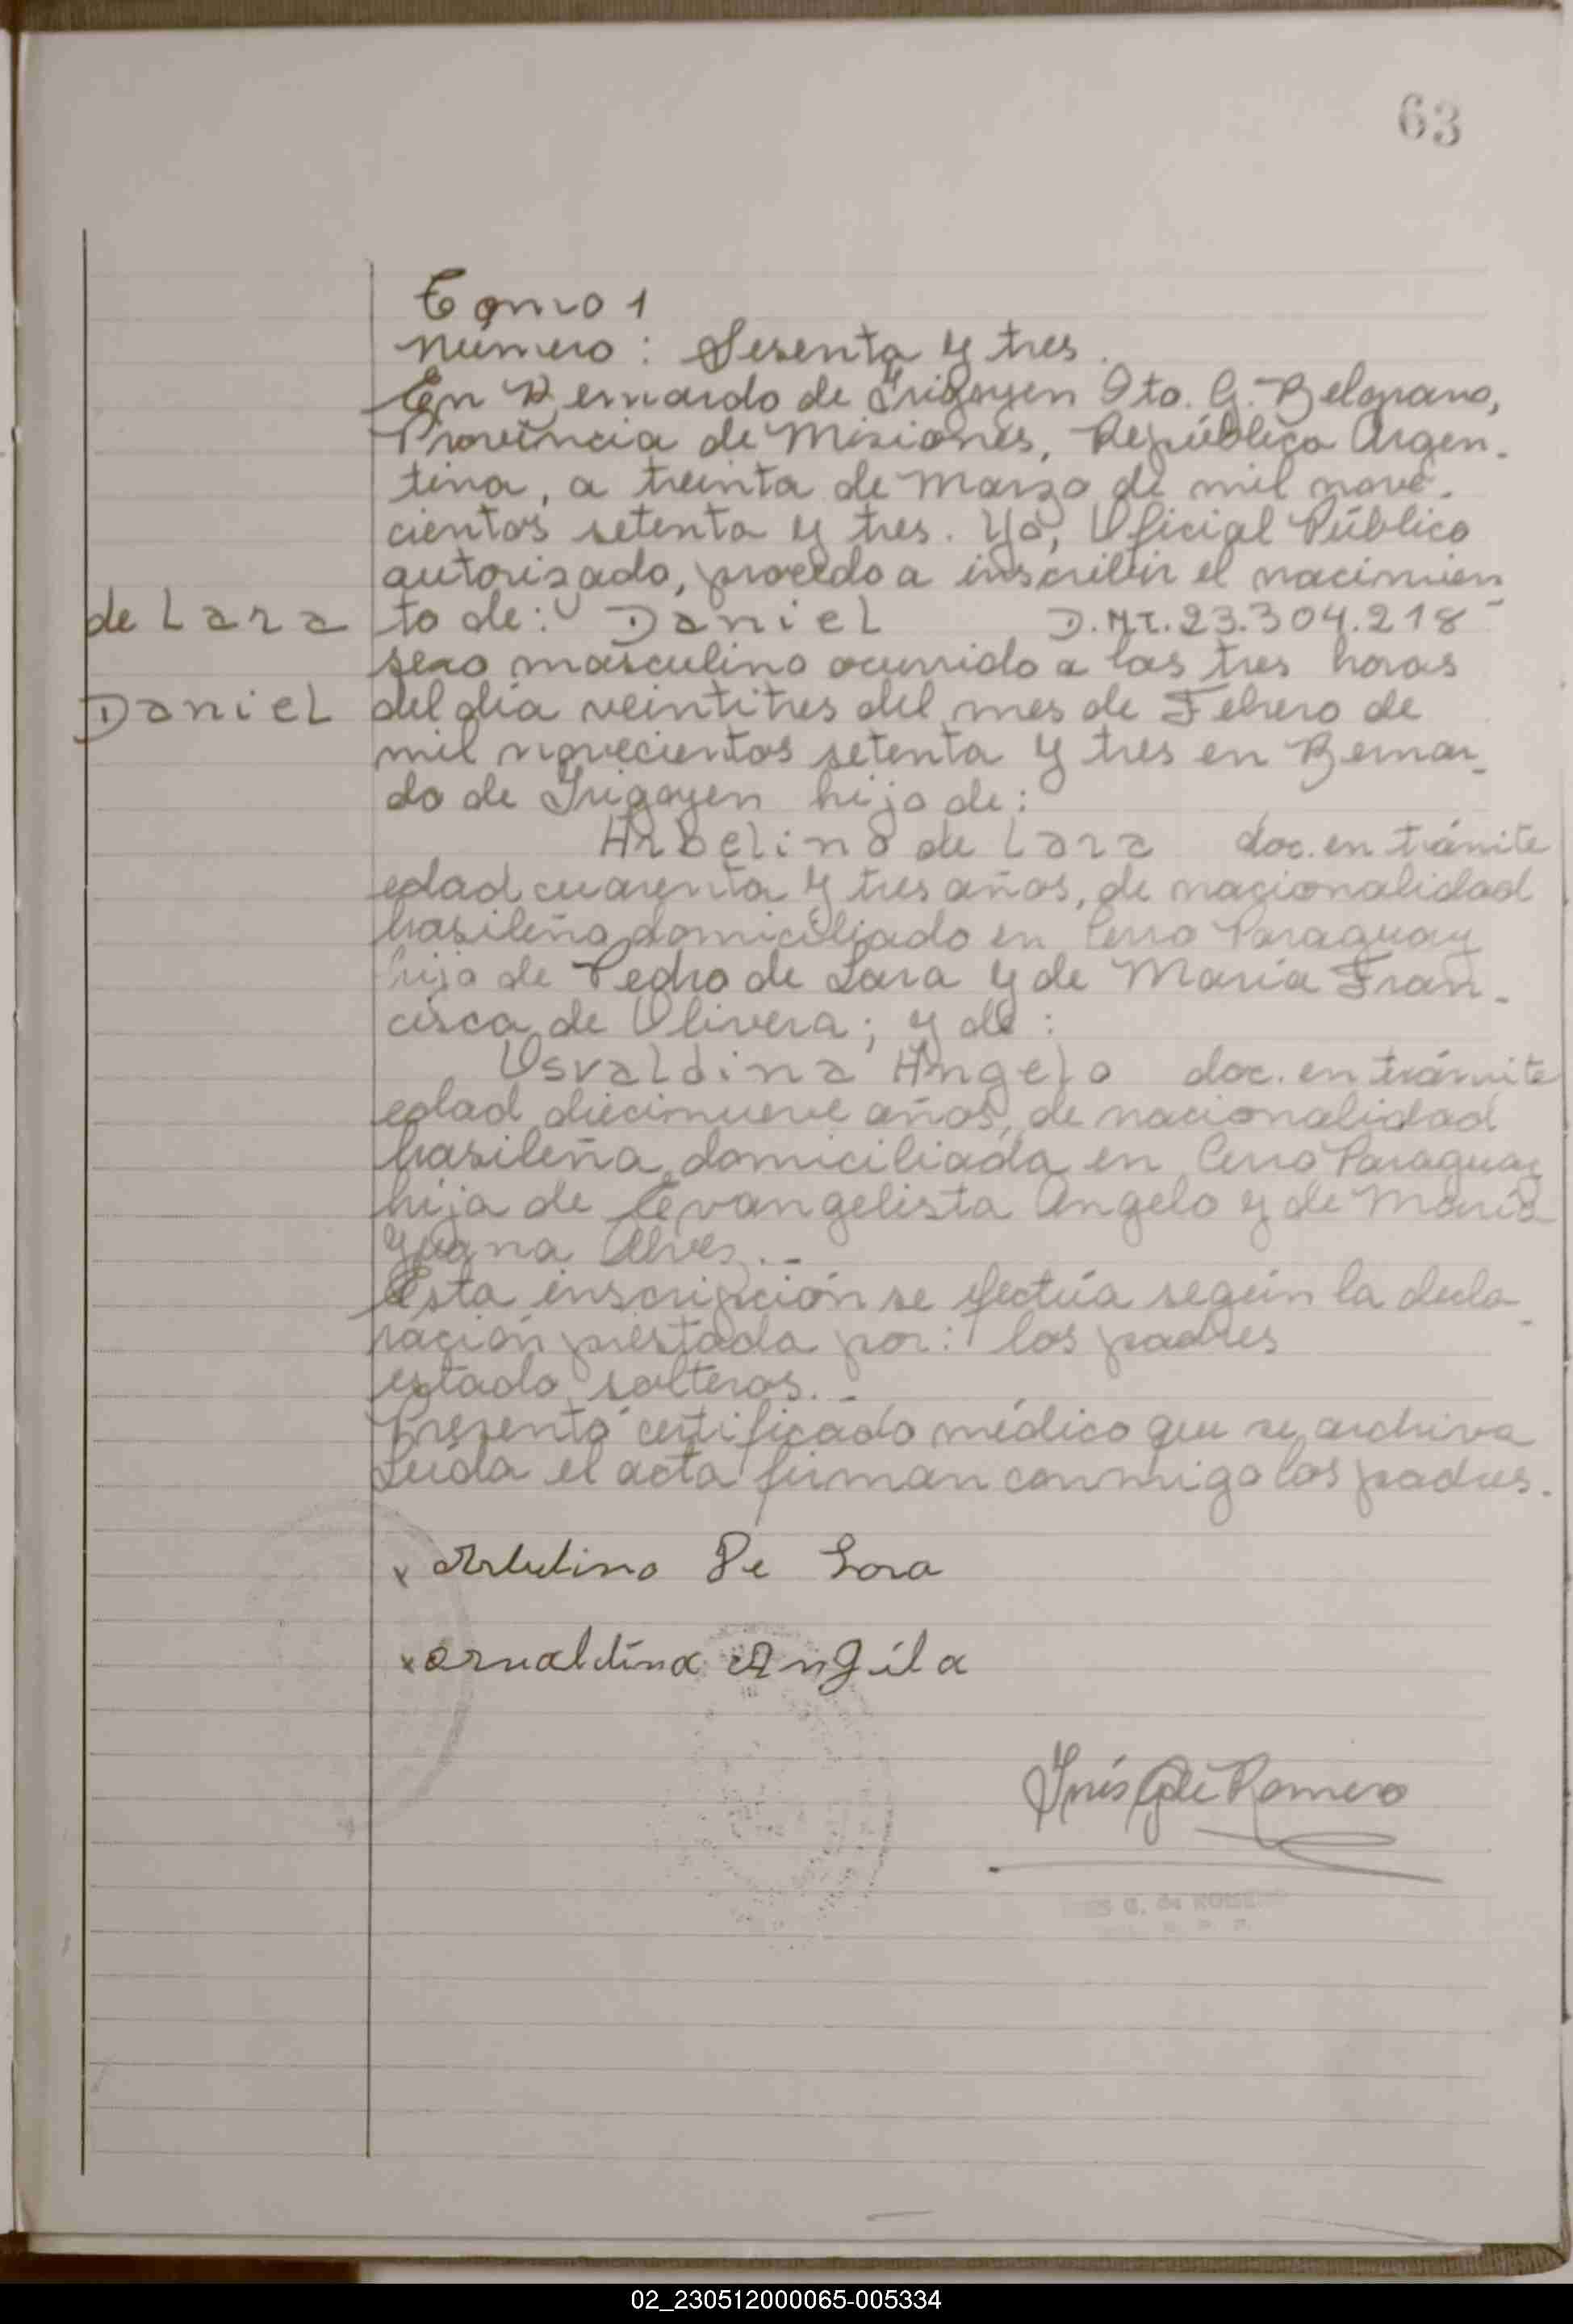 63
Tomo 1
Número: Sesenta y tres.
En Bernardo de Irigoyen Dto. G. Belgrano,
Provincia de Misiones, República Argen-
tina, a treinta de Marzo de mil nove-
cientos setenta y tres. Yo, Oficial Público
autorizado, procedo a inscribir el nacimien-
de Lara to de: Daniel D.M.I. 23.304.218
sexo masculino ocurrido a las tres horas
Daniel del día veintitres del mes de Febrero de
mil novecientos setenta y tres en Bernar-
do de Irigoyen hijo de:
Arbelino de Lara doc. en trámite
edad cuarenta y tres años, de nacionalidad
brasileña domiciliado en Cerro Paraguay
hijo de Pedro de Lara y de María Fran-
cisca de Olivera; y de:
Osvaldina Angelo doc. en trámite
edad diecinueve años, de nacionalidad
brasileña, domiciliada en Cerro Paraguay
hija de Evangelista Angelo y de María
Juana Alves.-
Esta inscripción se efectúa según la decla-
ración prestada por: los padres
estado solteros.-
Presentó certificado médico que se archiva
Leída el acta firman conmigo los padres.
x Arbelino De Lara
x osvaldina Angila
Inés G de Romero
G. de ROMERO
02_230512000065-005334